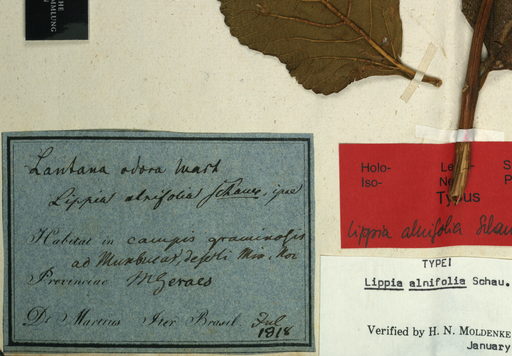 HE
MMLUNG
Lantana odora Mart
Lippia alnifolia Schauer, ipse
Habitat in campis graminosis
ad
Provinciae MGeraes
De Martius Iter Brasil Jul
1818
Holo-
Iso-
Typus
Lippia alnifolia Schau
TYPE!
Lippia alnifolia Schau.
Verified by H. N. MOLDENKE
January